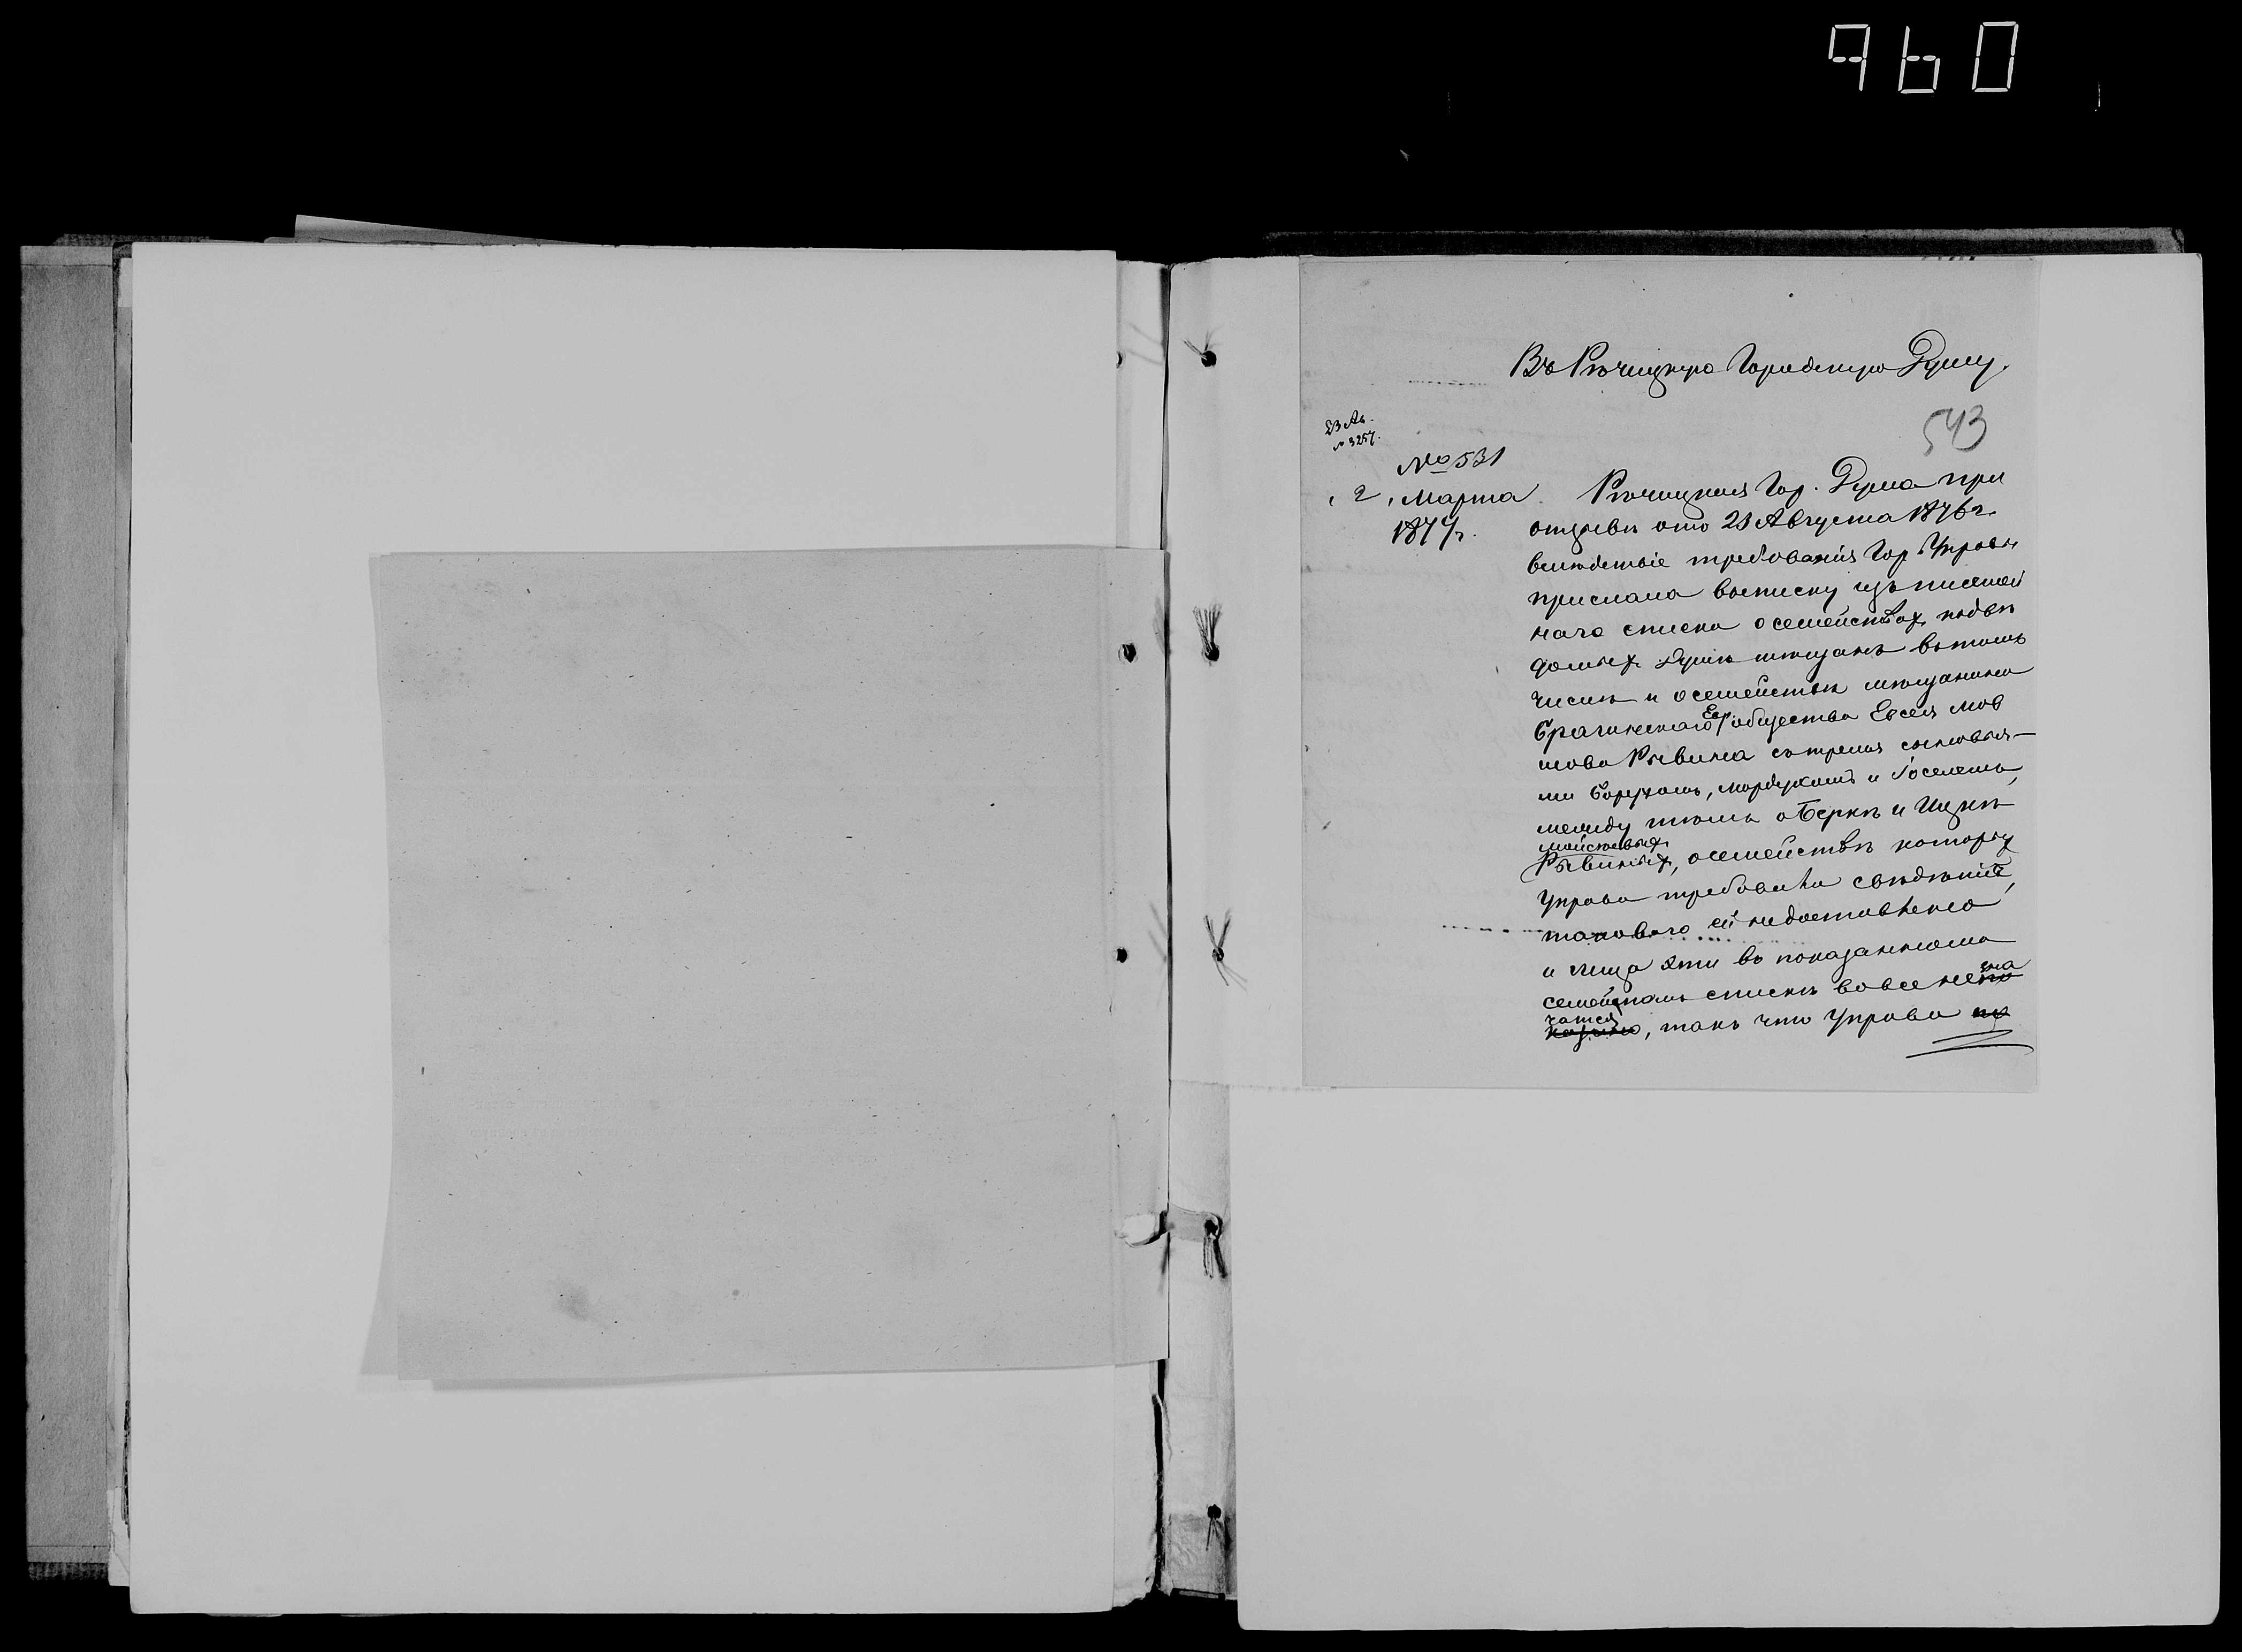 960
Въ Рѣчицкую Городскую Думу.
543
23 Ав.
№ 3257.
№ 531
„2„ Марта
1877г.
Рѣчицкая Гор. Дума при
отзывѣ отъ 21 Августа 1876 г.
вслѣдствіе требованія Гор. Управы
прислала выписку изъ
наго списка о семействахъ
душъ мѣщанъ въ томъ
числѣ и о семействѣ мѣщанина
Брагинскаго Евр. общества Евсея Мов
шова Рывина съ тремя сыновья-
ми Борухомъ, Мордухомъ и Іоселемъ,
между тѣмъ о Беркѣ и Ицкѣ
Мойсѣевыхъ
Рывиныхъ, о семействѣ которыхъ
Управа требовала свѣдѣнія,
таковаго ей недоставлено
и лица эти въ показанномъ
спискѣ вовсе не зна
чатся, такъ что Управа